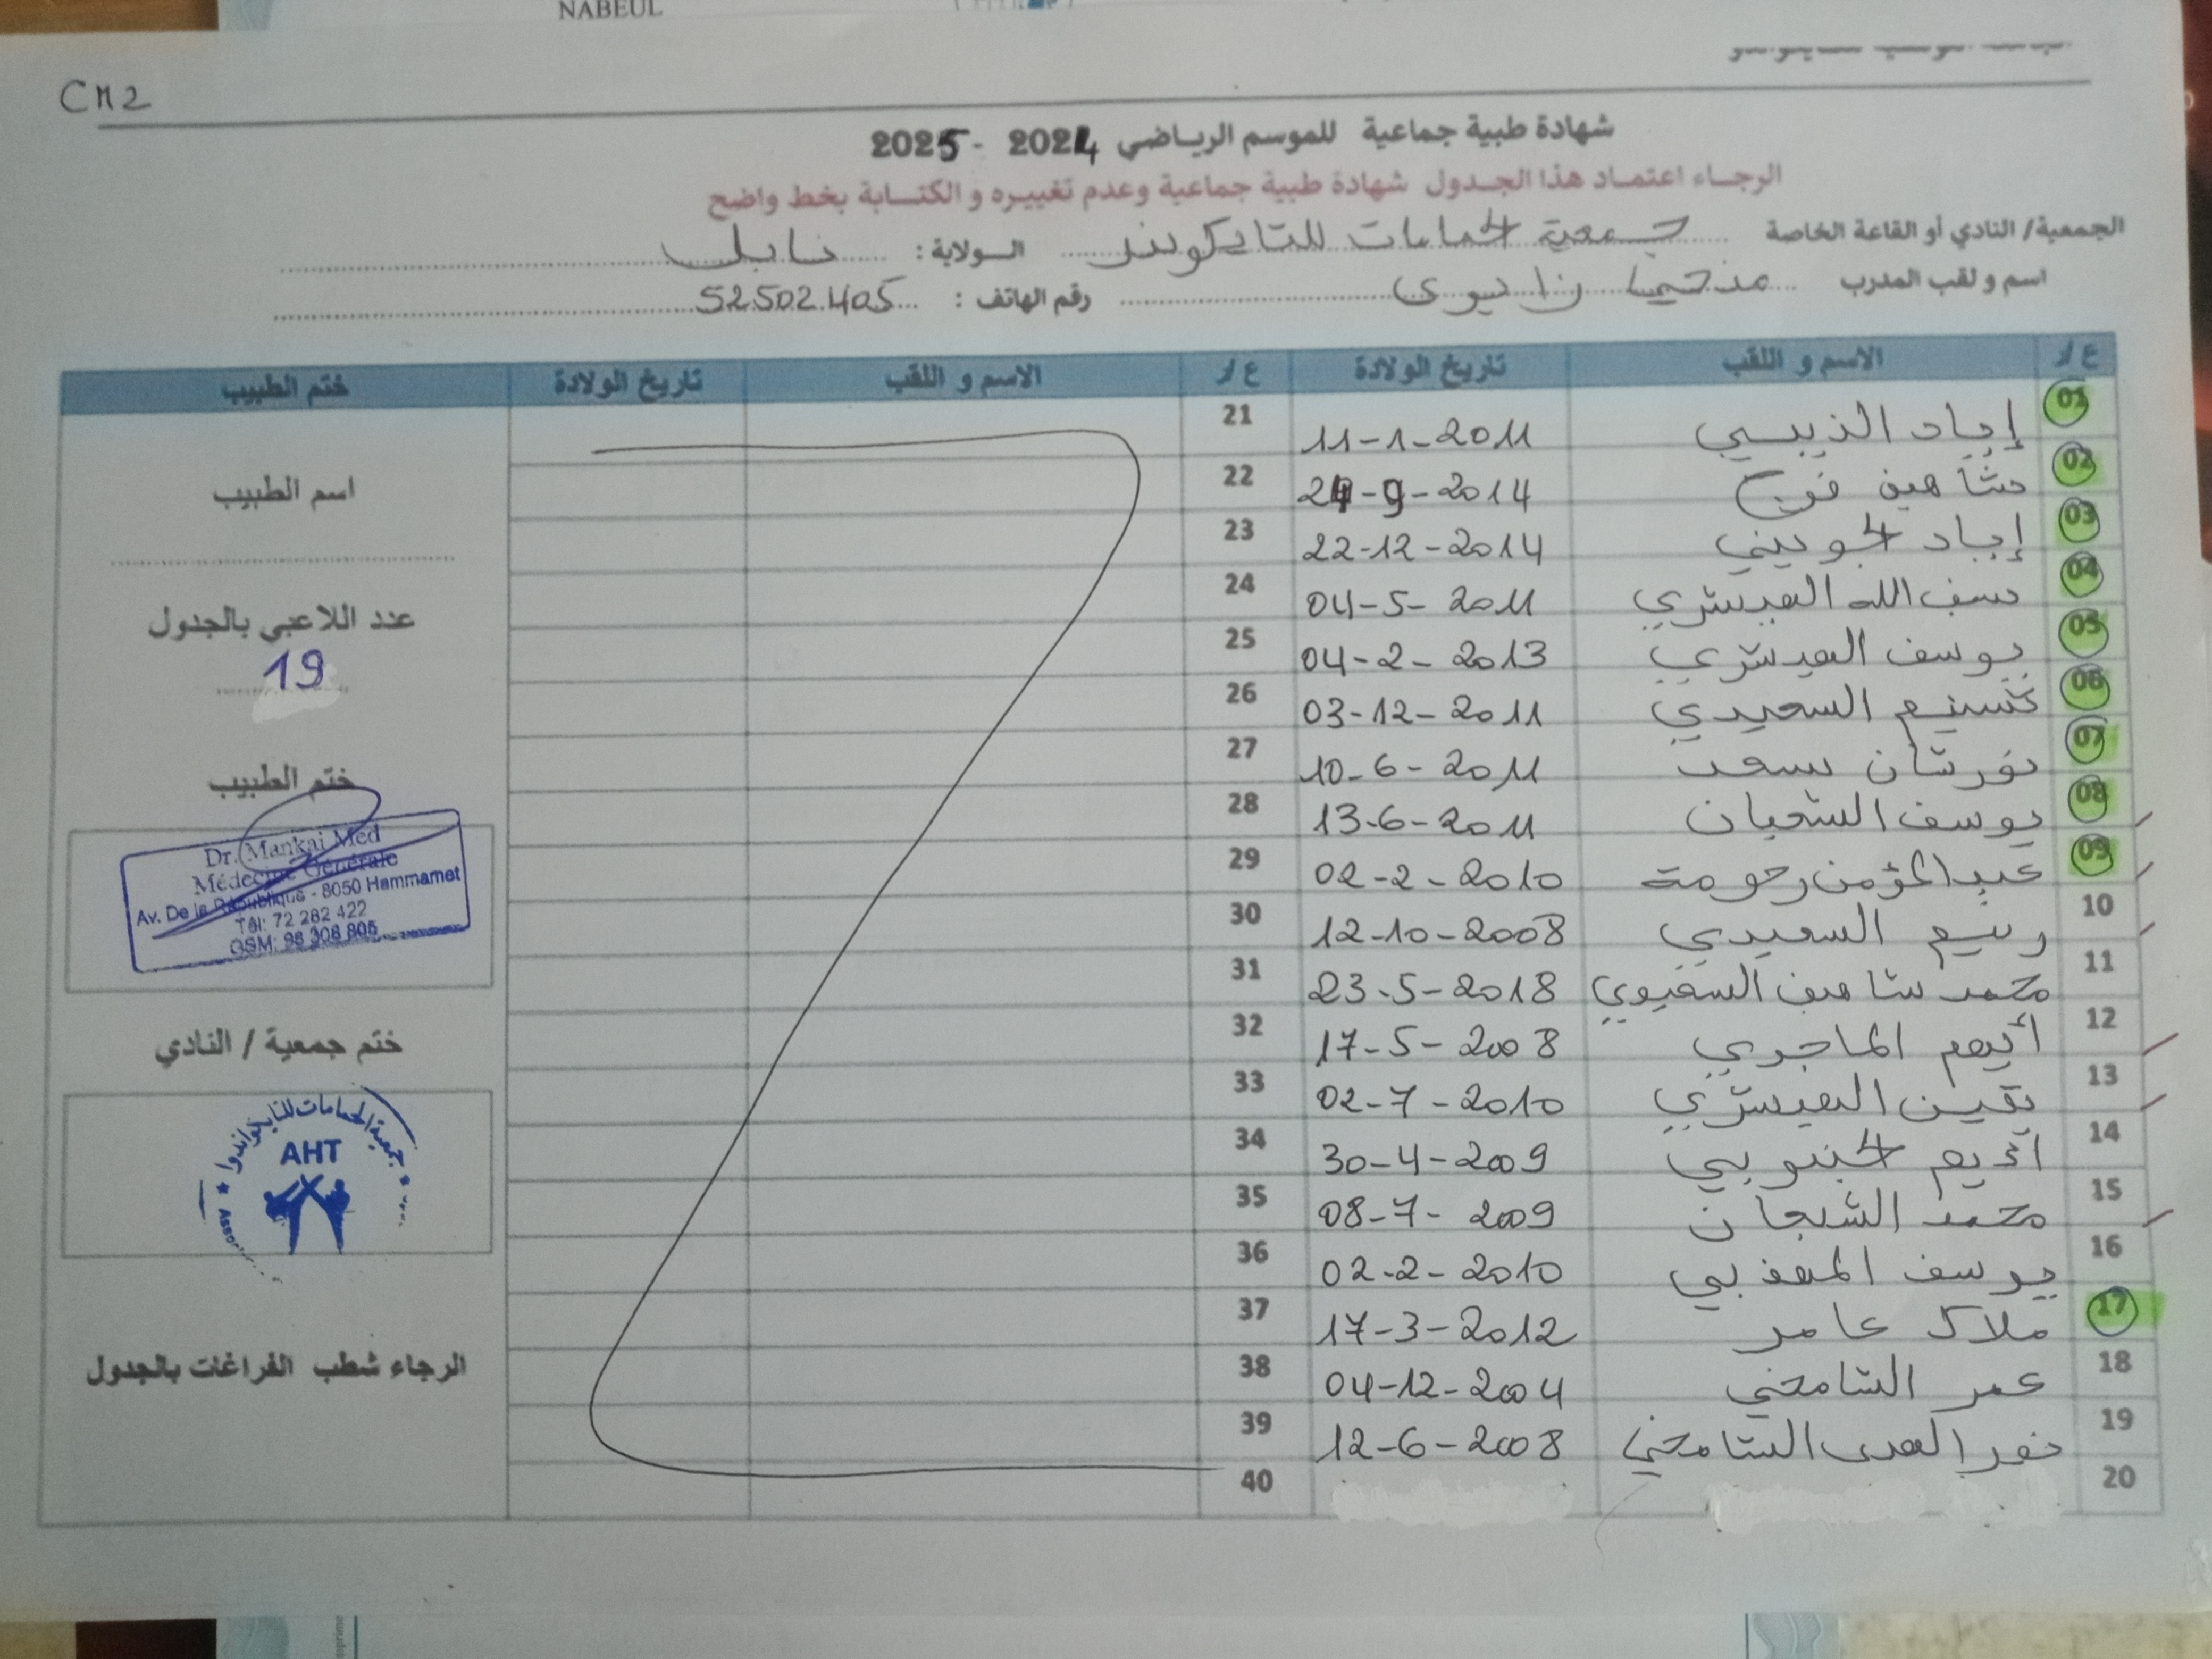 NABEUL
CM2
شهادة طبية جماعية للموسم الرياضي 2024 - 2025
الرجاء اعتماد هذا الجدول شهادة طبية جماعية وعدم تغييره و الكتابة بخط واضح
الجمعية/ النادي أو القاعة الخاصة جمعية الحمامات للتايكوندو الولاية: نابل
اسم و لقب المدرب رقم الهاتف : 52.502.405
ع/ر الاسم و اللقب تاريخ الولادة ع/ر الاسم و اللقب تاريخ الولادة ختم الطبيب
01 إياد الذيبي 11-1-2011 21
02 شاهين فرج 24-9-2014 22
03 إياد الجويني 22-12-2014 23
04 سيف الله العيشري 04-5-2011 24
05 يوسف العيشري 04-2-2013 25
06 تسنيم السعيدي 03-12-2011 26
07 نورشان سعد 10-6-2011 27
08 يوسف الشعبان 13-6-2011 28
09 عبد المؤمن رحومة 02-2-2010 29
10 ربيع السعيدي 12-10-2008 30
11 محمد شاهين 23-5-2018 31
12 أيهم الماجري 17-5-2008 32
13 يقين العيشري 02-7-2010 33
14 الجنوبي 30-4-2009 34
15 محمد 08-7-2009 35
16 يوسف 02-2-2010 36
17 ملاك عامر 17-3-2012 37
18 عمر الشامخي 04-12-2004 38
19 نور الهدى الشامخي 12-6-2008 39
20 40
اسم الطبيب
عدد اللاعبي بالجدول
19
ختم الطبيب
Dr. Mankai Med
Médecine Générale
Av. De la République - 8050 Hammamet
Tél: 72 282 422
GSM: 98 308 805
ختم جمعية / النادي
جمعية الحمامات للتايكواندوا
AHT
الرجاء شطب الفراغات بالجدول